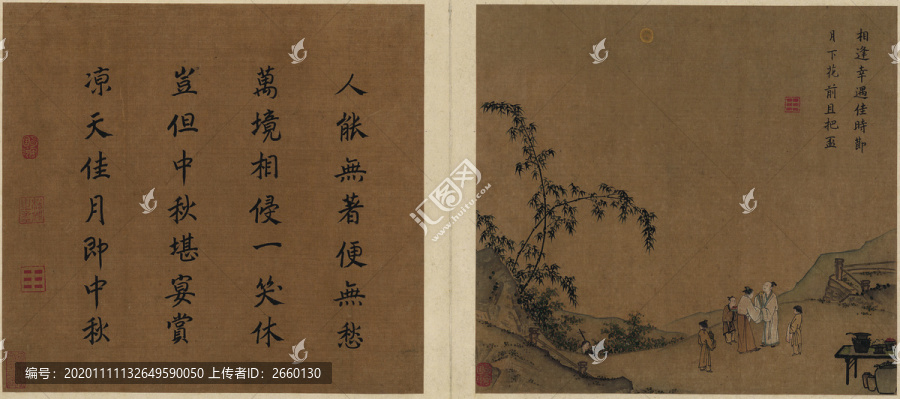 人能無著便無愁
萬境相侵一笑休
豈但中秋堪宴賞
凉天佳月即中秋
相逢幸遇佳時節
月下花前且把盃
汇图网
www.huitu.com
编号：20201111132649590050 上传者ID：2660130